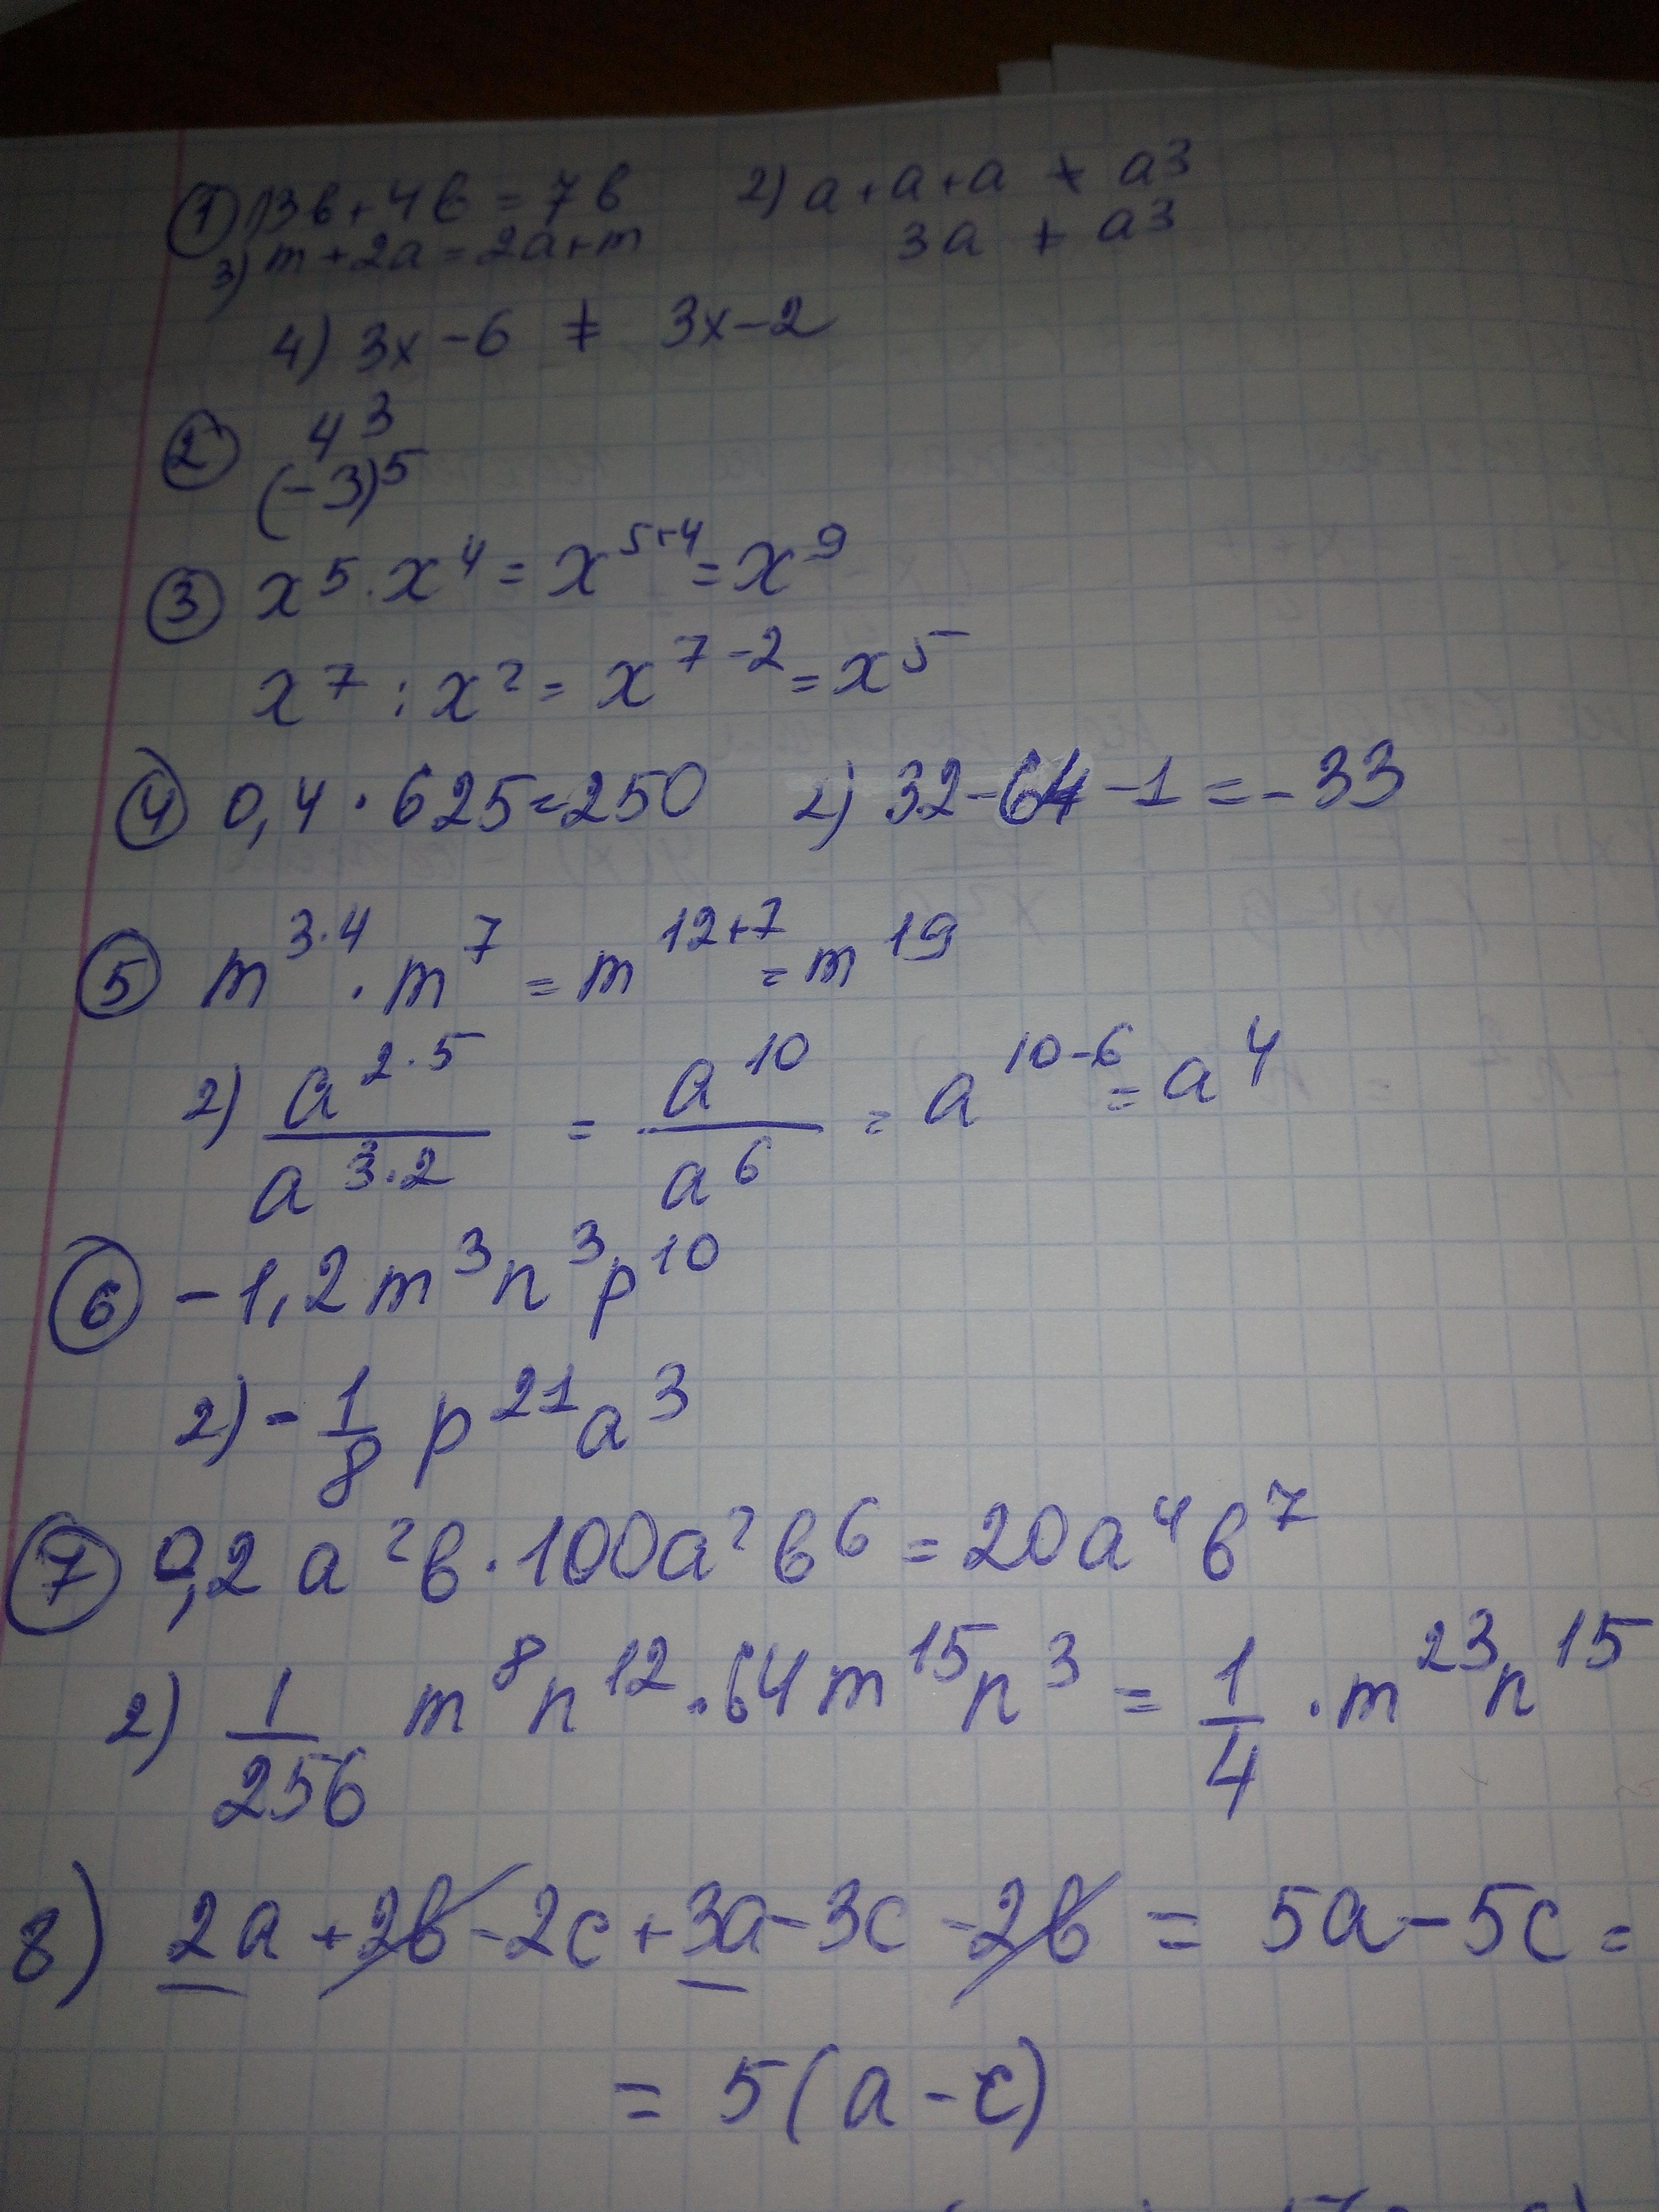 ① 1) 3в + 4в = 7в 2) a + a + a ≠ a³
3) m + 2a = 2a + m 3a ≠ a³
4) 3x - 6 ≠ 3x - 2
② 4³
(-3)⁵
③ x⁵ · x⁴ = x⁵⁺⁴ = x⁹
x⁷ : x² = x⁷⁻² = x⁵
④ 0,4 · 625 = 250 2) 32 - 64 - 1 = -33
⑤ m^(3·4) · m⁷ = m¹²⁺⁷ = m¹⁹
2) a^(2·5) / a^(3·2) = a¹⁰ / a⁶ = a¹⁰⁻⁶ = a⁴
⑥ -1,2m³n³p¹⁰
2) - 1/8 p²¹a³
⑦ 0,2 a²в · 100a²в⁶ = 20a⁴в⁷
2) 1/256 m⁸n¹² · 64m¹⁵n³ = 1/4 · m²³n¹⁵
8) 2a + 2в - 2c + 3a - 3c - 2в = 5a - 5c =
= 5(a - c)